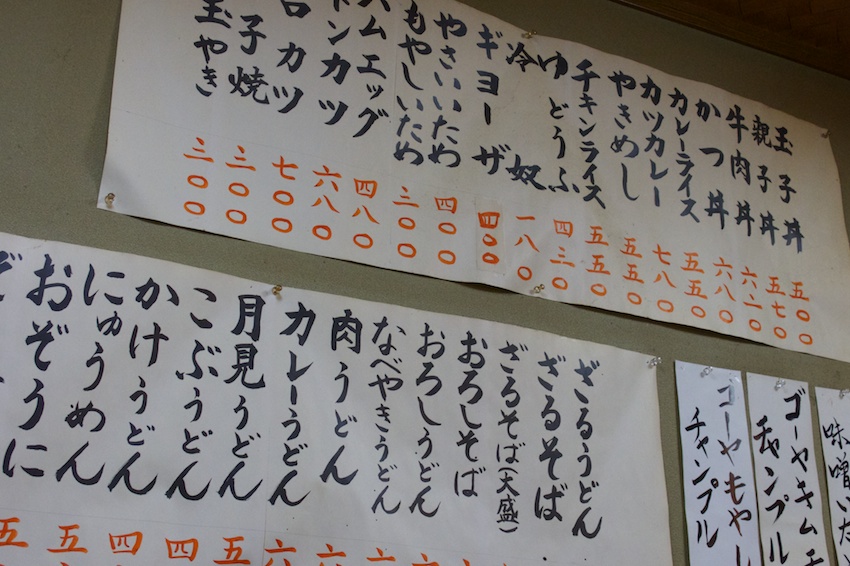 玉子丼 五〇〇
親子丼 五七〇
牛肉丼 六二〇
かつ丼 六八〇
カレーライス 五五〇
カツカレー 七八〇
やきめし 五五〇
チキンライス 五五〇
ゆどうふ 四三〇
冷奴 一八〇
ギョーザ 四〇〇
やさいいため 四〇〇
もやしいため 三〇〇
ハムエッグ 四八〇
トンカツ 六八〇
口カツ 七〇〇
子焼 三〇〇
玉やき 三〇〇
ざるうどん
ざるそば
ざるそば(大盛)
おろしそば
おろしうどん
なべやきうどん
肉うどん 六
カレーうどん 六
月見うどん 五
こぶうどん 四
かけうどん 四
にゅうめん 五
おぞうに 五
味噌いた
ゴーヤキムチ
チャンプル
ゴーヤもやし
チャンプル